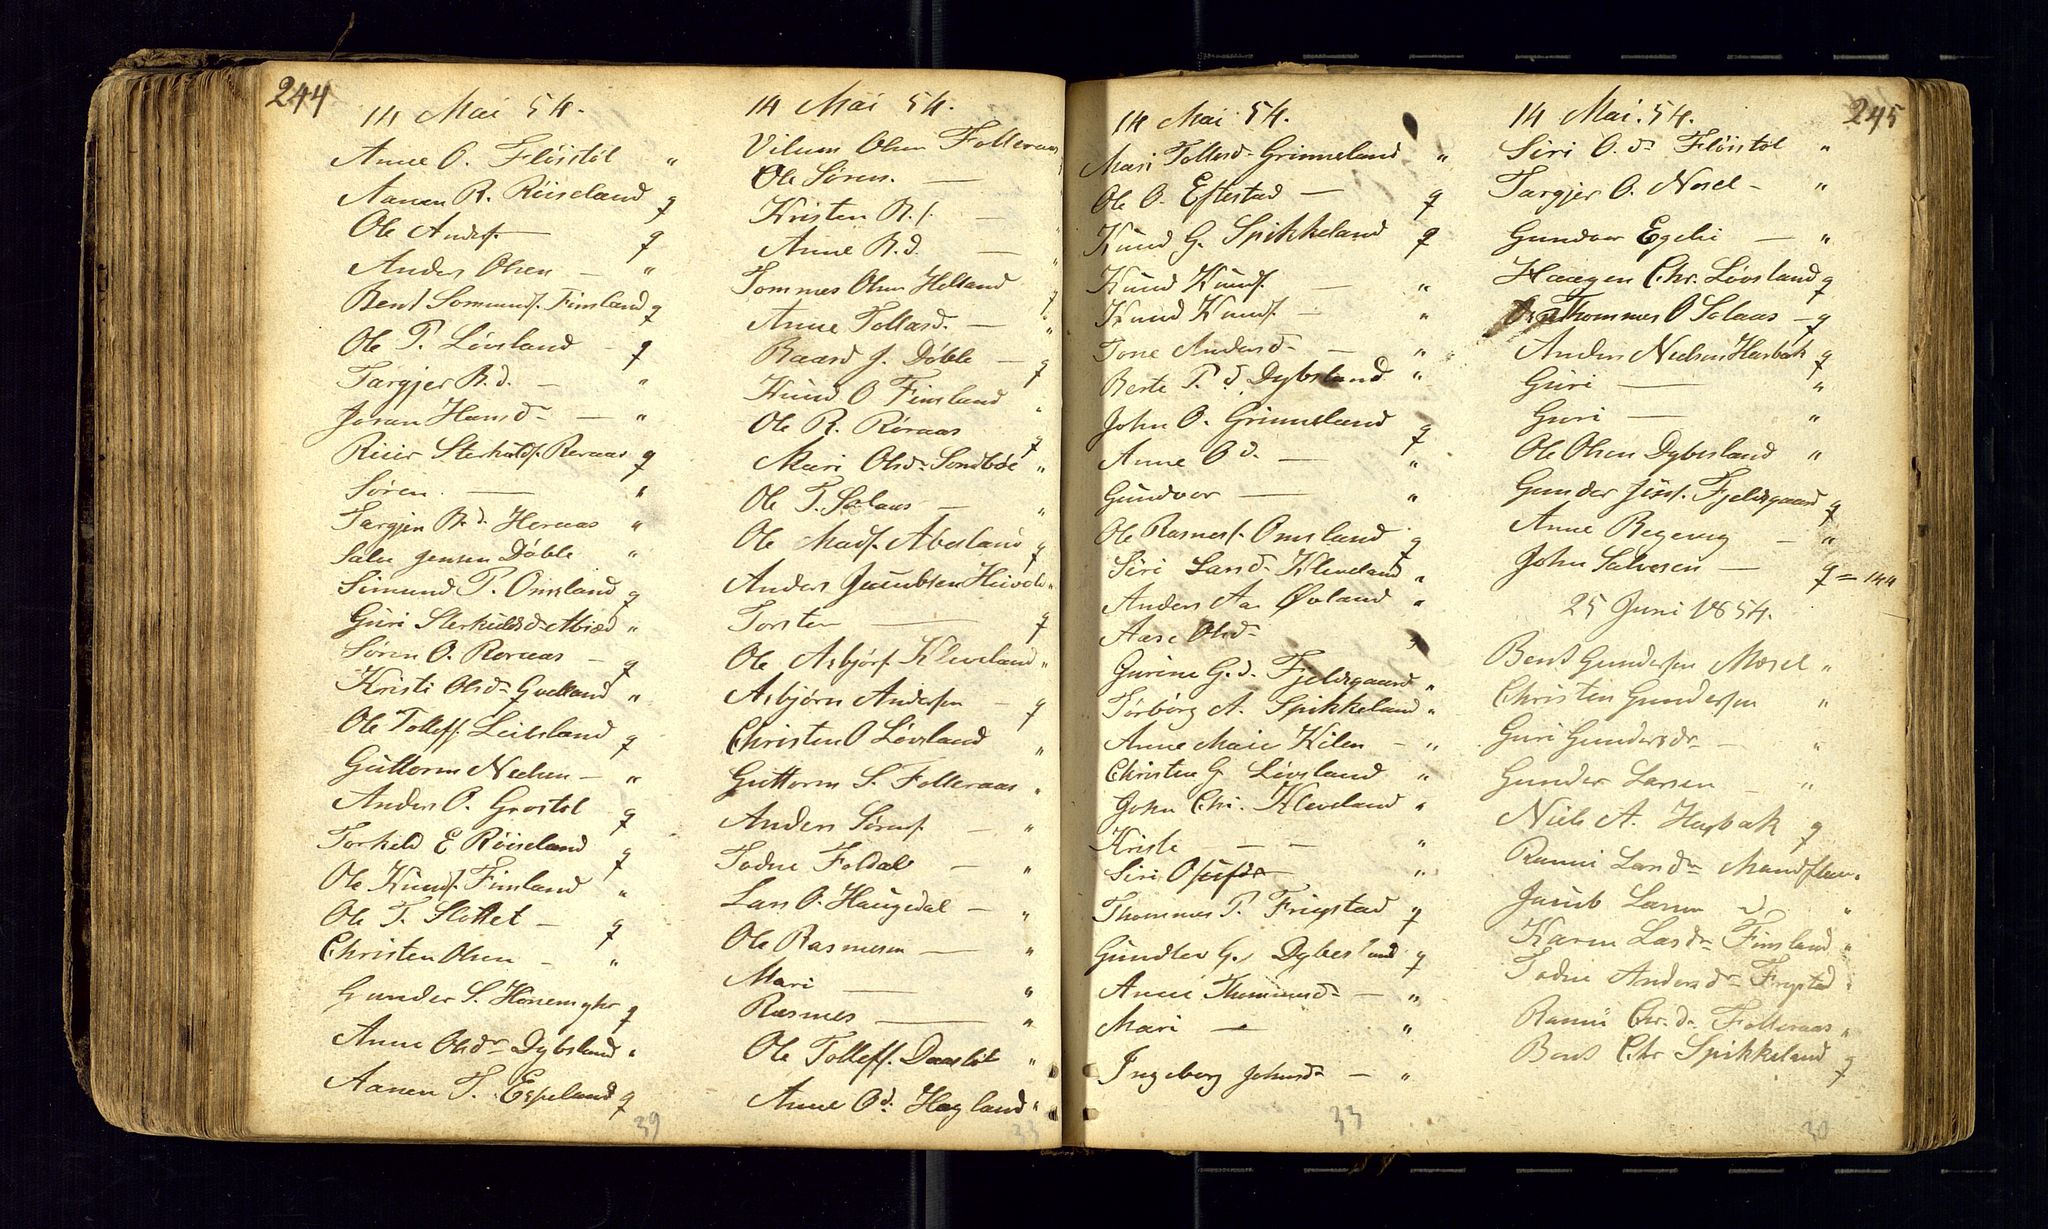 244
14 Mai 54.
Anne O. Fløistøl "
Aanen R. Røiseland q
Ole Anders. — q
Anders Olsen — "
Bent Somunds. Finsland q
Ole P. Løvsland - q
Targjer B.d. — "
Josan Hansd — "
Reier Sterkulds. Reraas q
Søren. — "
Targjer B.d. Heraas "
Salve Jensen Døble "
Simund P. Omsland q
Guri Sterkuldsd Abied "
Søren O. Reraas — q
Kristi Olsd Qvelland "
Ole Tollefs. Leibsland q
Guttorm Nielsen — "
Anders O. Grostøl q
Torkild E Røiseland q
Ole Knuds. Finsland "
Ole T. Slottet — q
Christen Olsen — "
Gunder S. Hønemyhr q
Anne Olsdr Dybsland "
Aanen T. Espeland q
39
14 Mai 54.
Vilum Olsen Folleraas
Ole Søren. —
Kristen B.s. —
Anne B.d. —
Tommes Olsen Helland q
Anne Tollasd. — "
Baard J. Døble — q
Knud O Finsland "
Ole R. Røraas q
Mari Olsd Sondbøe "
Ole T. Solaas — "
Ole Mads. Abesland q
Anders Jacubsen "
Torsten — q
Ole Asbjørs. Kleveland "
Asbjørn Andersen — q
Christen O Løvsland "
Guttorm S. Folleraas "
Anders Sørens. — "
Todne Foldal — "
Lars O. Haugedal — "
Ole Rasmusen — "
Mari — "
Rasmes — "
Ole Tollefs. Daastøl "
Anne O.d. Hagland "
33
14 Mai 54.
Mari Tollesd Grinneland "
Ole O. Eftestad — q
Knud G. Spikkeland q
Knud Knuds. — "
Knud Knuds. — "
Tone Andersd — "
Berte P.d Dybsland "
John O. Grimeland q
Anne O.d. — "
Gundvor — "
Ole Rasmess. Omsland q
Siri Larsd Kleveland "
Anders Aa. Øvland "
Aase Olsd "
Gurine G.d. Fjeldsgaard "
Tørborg A. Spikkeland "
Anne Marie Kilen — "
Christen G Løvsland "
John Chr. Kleveland "
Kriste — — "
Siri — "
Thommes P. Frigstad q
Gundlev G. Dybesland q
Anne Thommesd — "
Mari — "
Ingeborg Johnsd — "
33
245
14 Mai. 54.
Siri O.d Fløistøl "
Targjer O. Nosel — "
Gundvor Egelie — "
Haagen Chr. Løvsland q
Thommes O Solaas — q
Anders Nielsen Hasbak q
Guri — "
Guri — "
Ole Olsen Dybesland "
Gunder Jens. Fjeldsgaard q
Anne Regevig — "
John Salvesen — q = 144
25 Juni 1854.
Bent Gundersen Mosel "
Christen Gundersen "
Guri Gundersdr — "
Gunder Larsen — "
Niels A. Hasbak q
Rannei Larsdr "
Jacub Larsen "
Karen Larsdr Finsland "
Todne Andersdr Frigstad "
Rannei Chr.dr Folleraas "
Bent Chr Spikkeland q
30